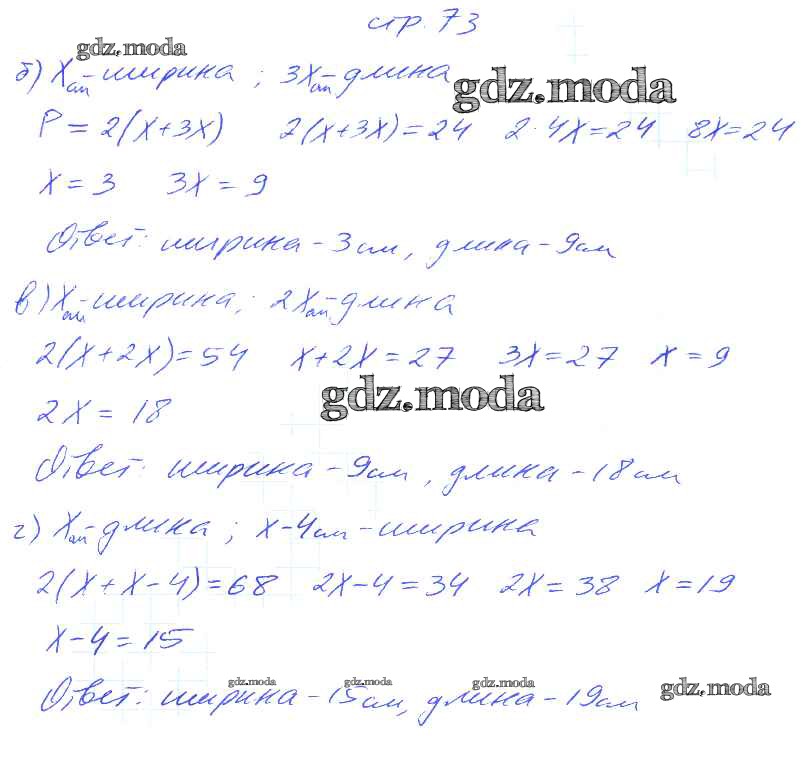 стр. 73
gdz.moda
б) X см - ширина ; 3X см - длина
gdz.moda
P = 2(X+3X) 2(X+3X)=24 2·4X=24 8X=24
X = 3 3X = 9
Ответ: ширина - 3 см, длина - 9 см
в) X см - ширина; 2X см - длина
2(X+2X)=54 X+2X=27 3X=27 X=9
gdz.moda
2X = 18
Ответ: ширина - 9 см, длина - 18 см
г) X см - длина; X-4 см - ширина
2(X+X-4)=68 2X-4=34 2X=38 X=19
X-4=15
gdz.moda gdz.moda gdz.moda gdz.moda
Ответ: ширина - 15 см, длина - 19 см